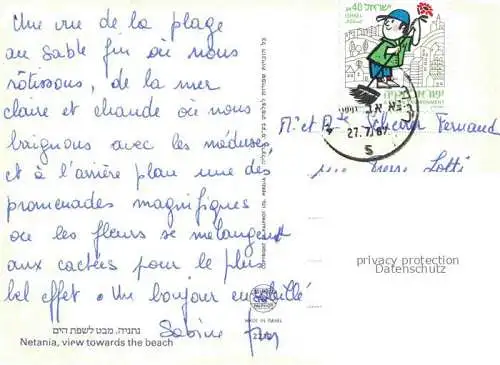 Une vue de la plage
au sable fin où nous
rôtissons, de la mer
claire et chaude où nous
baignons avec les méduses
et à l'arrière plan une des
promenades magnifiques
où les fleurs se mélangent
aux cactées pour le plus
bel effet. Un bonjour ensoleillé
Sabine
נתניה, מבט לשפת הים
Netania, view towards the beach
MADE IN ISRAEL
ישראל
ISRAEL
0.40
27.7.87
5
Mr et Mme Scherrer Fernand
rue Pierre Lotti
privacy protection
Datenschutz